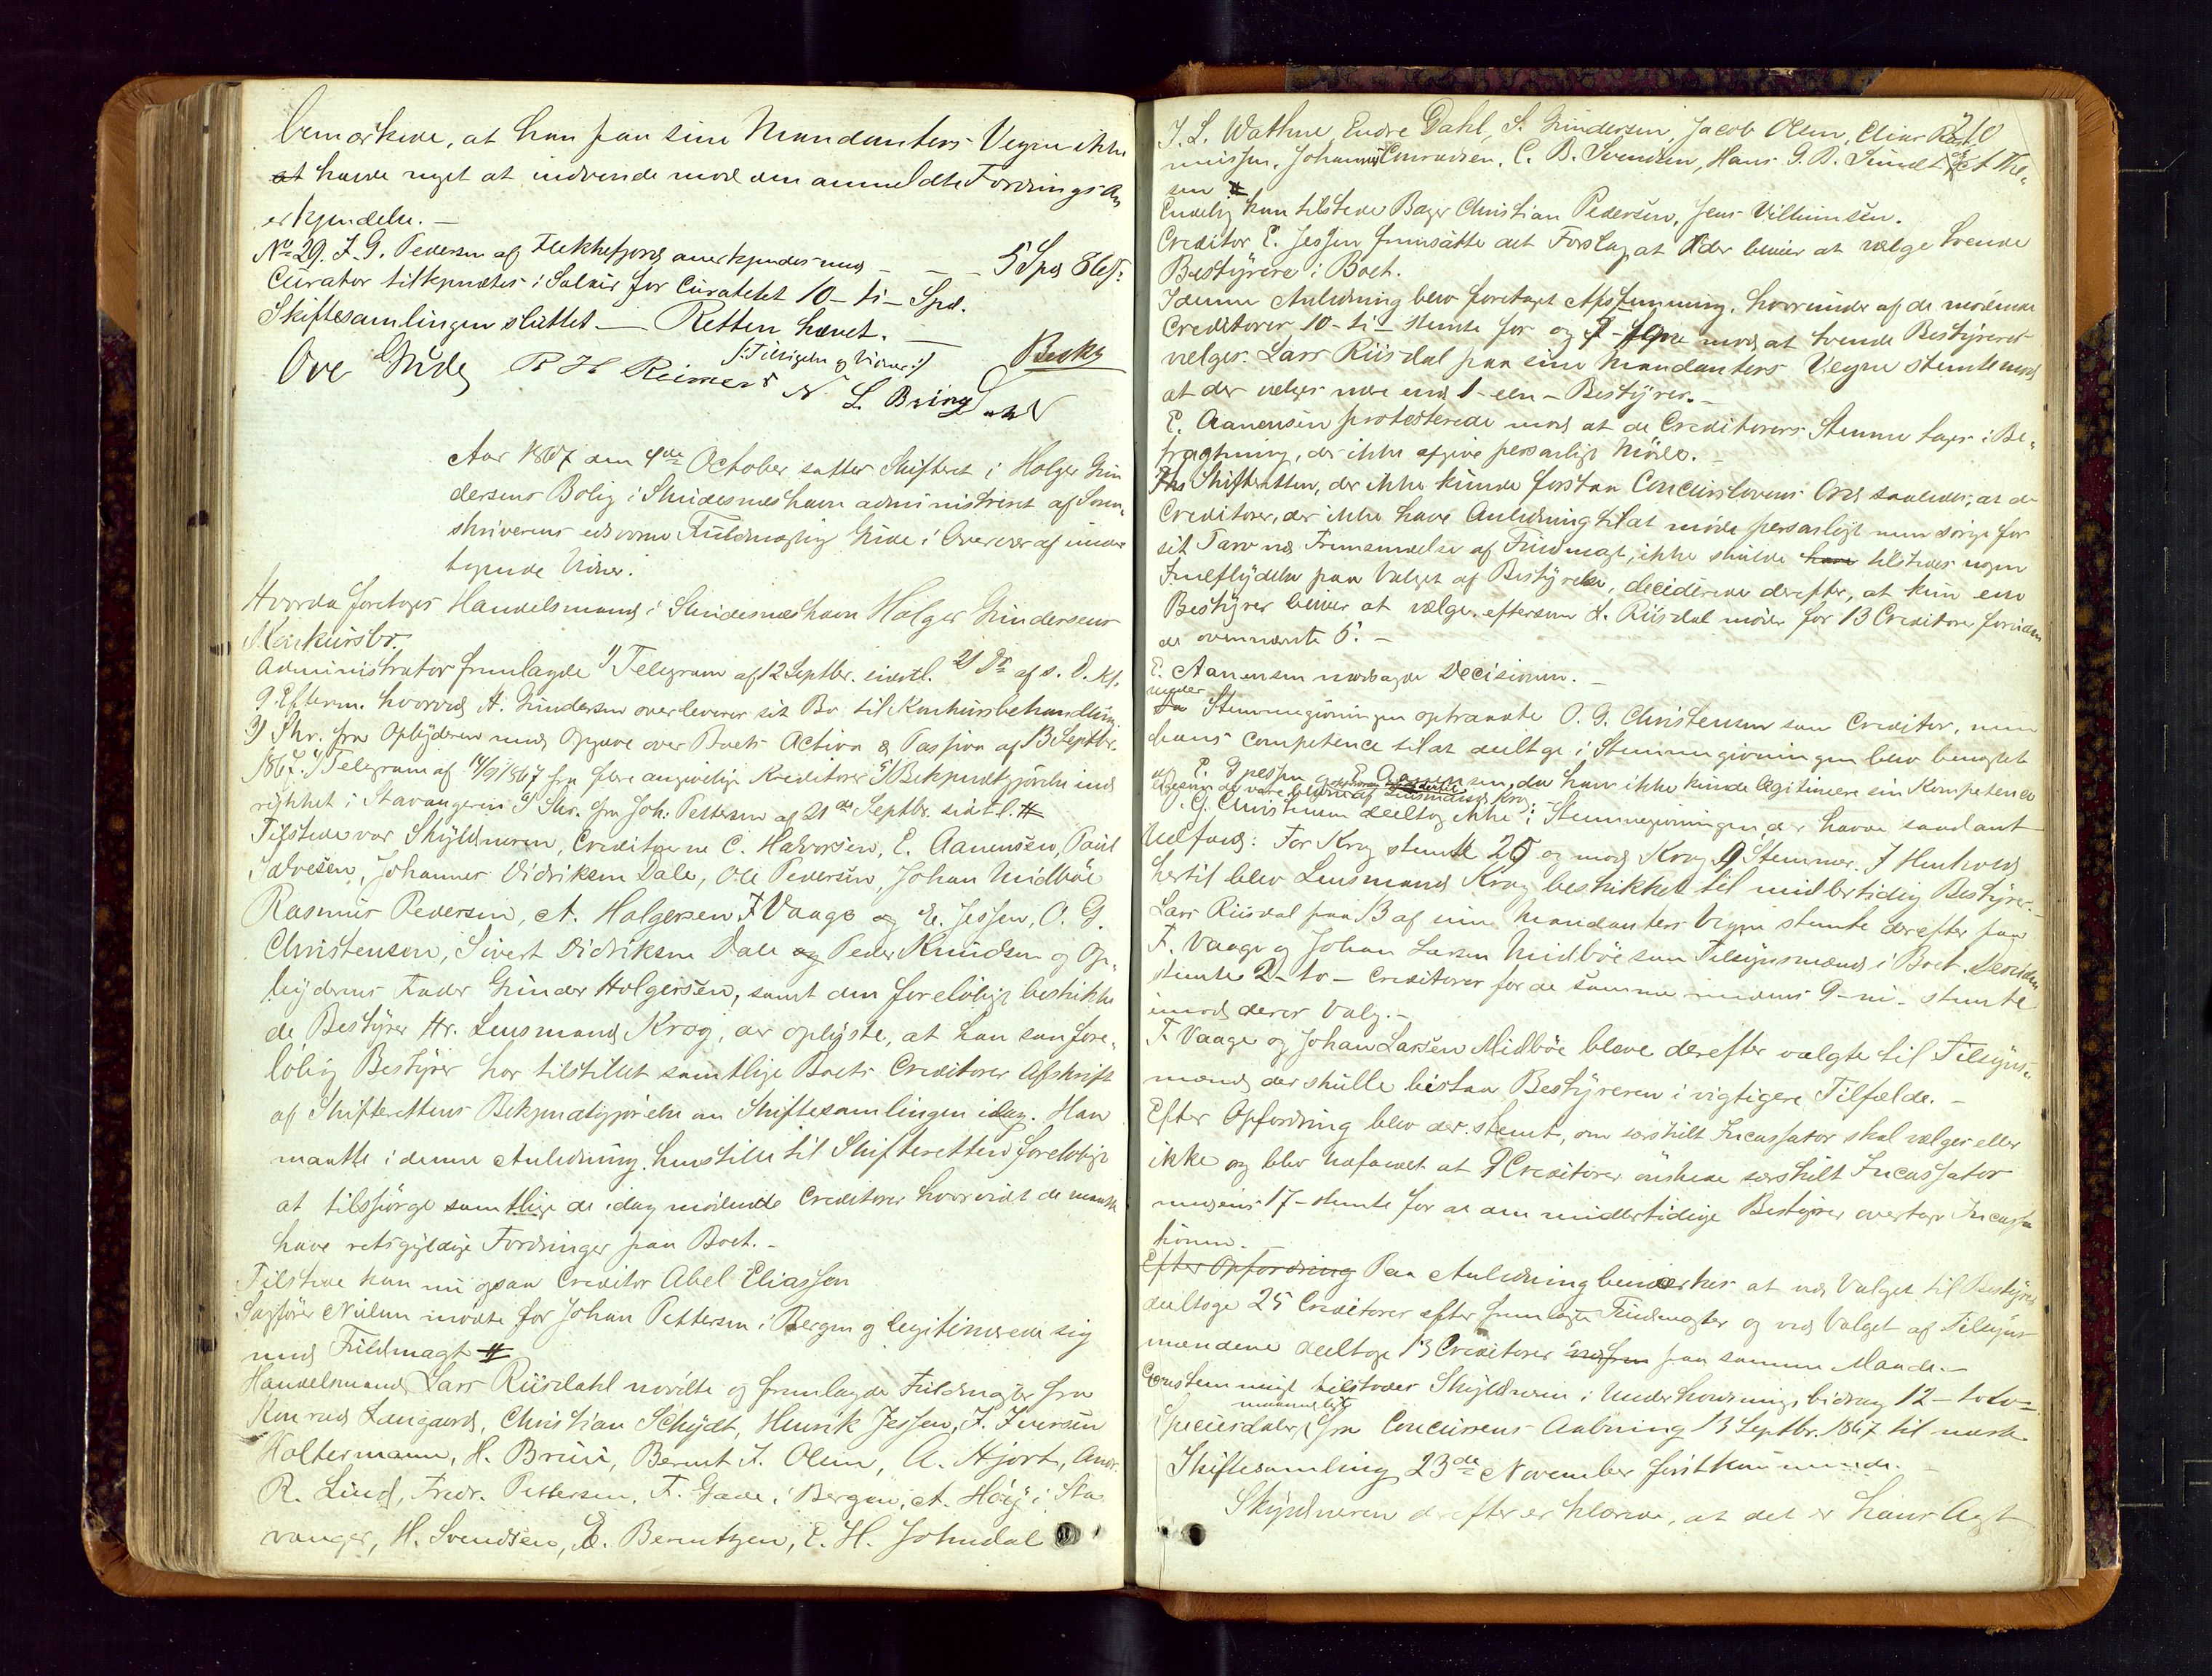 bemærkede, at han paa sine Mandanters Vegne ikke
at havde noget at indvende mod den anmeldte Fordrings An
erkjendelse. —
No 29. F. G. Pedersen af Flekkefjord anerkjendes med — — — 5 Spd 86 s.
Curator tilkjendtes i Salair for Curatelet 10 - ti - Spd.
Skiftesamlingen sluttet. — Retten hævet. —
Ove Gude R H Reimers N. L. Bringdahl
Aar 1867 den 4de October sattes Skifteret i Holger Gun
dersens Bolig i Skudesneshavn administreret af Soren-
skriverens edsvorne Fuldmægtig Gude i Overvær af under
tegnede Vidner.
Hvorda foretoges Handelsmand i Skudesneshavn Holger Gundersens
Konkursbo.
Administrator fremlagde 1) Telegram af 12 Septbr. sidstl. 2) Do af s. D. Kl.
9 Efterm. hvorved H. Gundersen overleverer sit Bo til Konkursbehandling.
3) Skr. fra Opbyderen med Opgave over Boets Activa & Passiva af 13 Septbr.
1867. 4) Telegram af 14/9 1867 fra flere angivelige Kreditorer 5) Bekjendtgjørelse ind
rykket i Stavangeren 6) Skr. fra Joh: Pettersen af 21de Septbr. sidstl.
Tilstede var Skyldneren, Creditorerne C. Halvorsen, E. Aanensen, Paul
Salvesen, Johannes Didriksen Dale, Ole Pedersen, Johan Midbøe
Rasmus Pedersen, A. Holgersen F Vaage og E. Jessen, O. G.
Christensen, Sivert Didriksen Dale og Peder Knudsen og Op-
byderens Fader Gunder Holgersen, samt den foreløbigt beskikke
de Bestyrer Hr. Lensmand Krog, der oplyste, at han som fore-
løbig Bestyrer har tilstillet samtlige Boets Creditorer Afskrift
af Skifterettens Bekjendtgjørelse om Skiftesamlingen idag. Han
maatte i denne Anledning henstille til Skifteretten foreløbigt
at tilspørge samtlige de idag mødende Creditorer hvorvidt de maatte
have retsgyldige Fordringer paa Boet. —
Tilstede kom nu ogsaa Creditor Abel Eliassen
Sagfører Nielsen mødte for Johan Pettersen i Bergen og legitimerede sig
med Fuldmagt
Handelsmand Lars Riisdahl mødte og fremlagde Fuldmagter fra
Konrad Langaard, Christian Schydt, Henrik Jessen, F. Iversen
Holtermann, H. Bruii, Bernt F. Olsen, A. Hjort, Andr.
R. Lind, Fredr. Pettersen, F. Gade i Bergen, A. Høy i Sta
vanger, H. Svendsen, E. Berentzen, C. H. Johndal
J. L. Wathne Endre Dahl, S. Gundersen, Jacob Olsen, Elias
nissen, Johannes Conradsen, C. B. Svendsen, Hans G. B. Sundt og A The-
sen
Endelig kom tilstede Bager Christian Pedersen, Jens Villumsen.
Creditor E. Jessen fremsatte det Forslag, at der bliver at vælge tvende
Bestyrere i Boet.
I denne Anledning blev foretaget Afstemning, hvorunder af de mødende
Creditorer 10 - ti - stemte for og mod at tvende Bestyrere
vælges. Lars Riisdal paa sine Mandanters Vegne stemte mod
at der vælges mere end 1 - een - Bestyrer. —
E. Aanensen protesterede mod at de Creditorers Stemme tages i Be-
tragtning, der ikke afgive personligt Møde. —
Skifteretten, der ikke kunde forstaa Concurslovens Ord saaledes, at de
Creditorer, der ikke have Anledning til at møde personligt men sørge for
sit Tarv ved Fremsendelse af Fuldmagt, ikke skulde have tilstedes nogen
Indflydelse paa Valget af Bestyrelse, deciderede derefter, at kun een
Bestyrer bliver at vælge, eftersom L. Riisdal møder for 13 Creditorer foruden
de ovennævnte 5. —
E. Aanensen modsagde Decisionen. —
under
Stemmegivningen optraadte O. G. Christensen som Creditor, men
hans Competence til at deeltage i Stemmegivningen blev benægtet
af E. Jessen og E. Aanensen, da han ikke kunde legitimere sin Kompetence
O. G. Christensen deeltog ikke i Stemmegivningen, der havde saadant
Udfald: For Krog stemte 25 og mod Krog 9 Stemmer. I Henhold
hertil blev Lensmand Krog beskikket til midlertidig Bestyrer. —
Lars Riisdal paa 13 af sine Mandanters Vegne stemte derefter paa
F. Vaage og Johan Larsen Midbøe som Tilsynsmænd i Boet. Desuden
stemte 2 - to - Creditorer for de samme medens 9 - ni - stemte
imod deres Valg. —
F. Vaage og Johan Larsen Midbøe bleve derefter valgte til Tilsyns-
mænd, der skulle bistaa Bestyreren i vigtigere Tilfælde. —
Efter Opfordring blev der stemt, om særskilt Incassator skal vælges eller
ikke og blev Udfaldet at 9 Creditorer ønskede særskilt Incassator
medens 17 - stemte for at den midlertidige Bestyrer overtager Incassa
tionen. —
Efter Opfordring Paa Anledning bemærkes at ved Valget til Bestyrer
deeltoge 25 Creditorer efter fremlagte Fuldmagter og ved Valget af Tilsyns
mændene deeltoge 13 Creditorer paa samme Maade. —
Eenstemmigt tilstodes Skyldneren i Underholdningsbidrag 12 - tolv -
maanedligt
Speciesdaler fra Concursens Aabning 13 Septbr. 1867 til næste
Skiftesamling 23de November førstkommende. —
Skyldneren derefter erklærede, at det er hans Agt